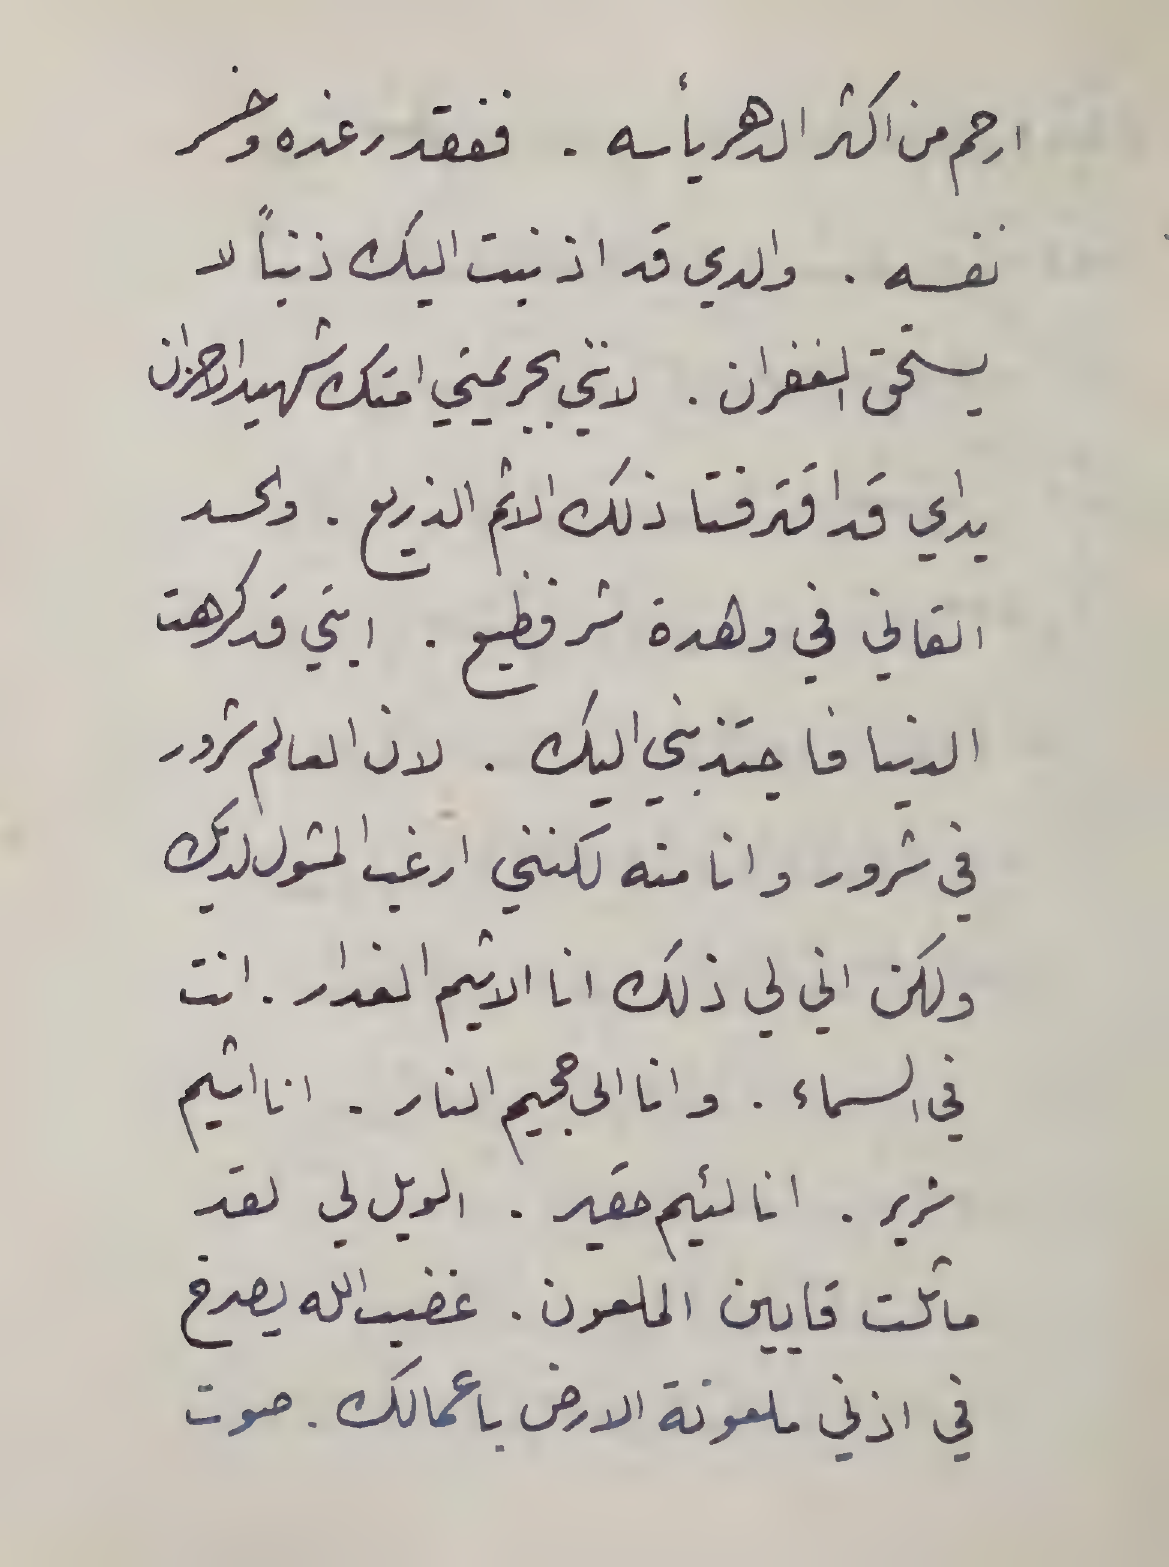 ارحم من اكثر الدهر يأسه . ففقد رغده وخسر
نفسه . والدي قد اذنبت اليك ذنباً لا
يستحق الغفران . لانني بجريمتي امتك شهيد الاحزان
يداي قد اقترفتا ذلك الاثم الذريع . والحسد
القاني في وهدة شر فظيع . ابتي قد كرهت
الدنيا فاجتذبني اليك . لان العالم شرور
في شرور وانا منه لكنني ارغب المثول لديك
ولكن انى لي ذلك انا الاثيم الغدار . انت
في السماء . وانا الى جحيم النار . انا اثيم
شرير . انا لئيم حقير . الويل لي لقد
ماثلت قايين الملعون . غضب الله يصرخ
في اذني ملعونة الارض باعمالك . صوت